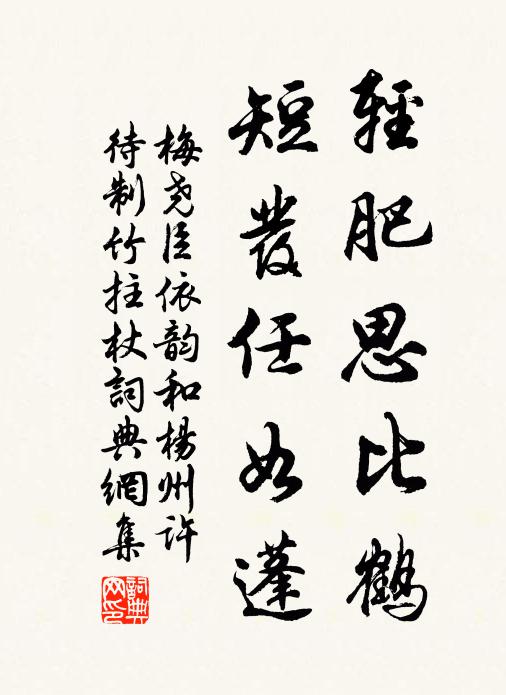 輕肥思比鶴
短發任如蓬
梅尧臣依韵和楊州許
待制竹拄杖詞典網集
詞典
网印